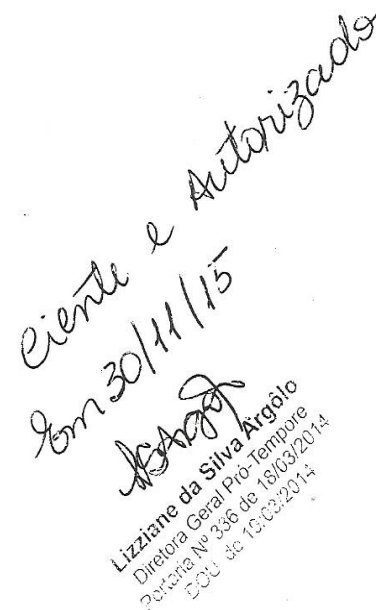 Ciente e Autorizado
Em 30/11/15
Lizziane da Silva Argôlo
Diretora Geral Pró-Tempore
Portaria Nº 336 de 18/03/2014
DOU de 19/03/2014